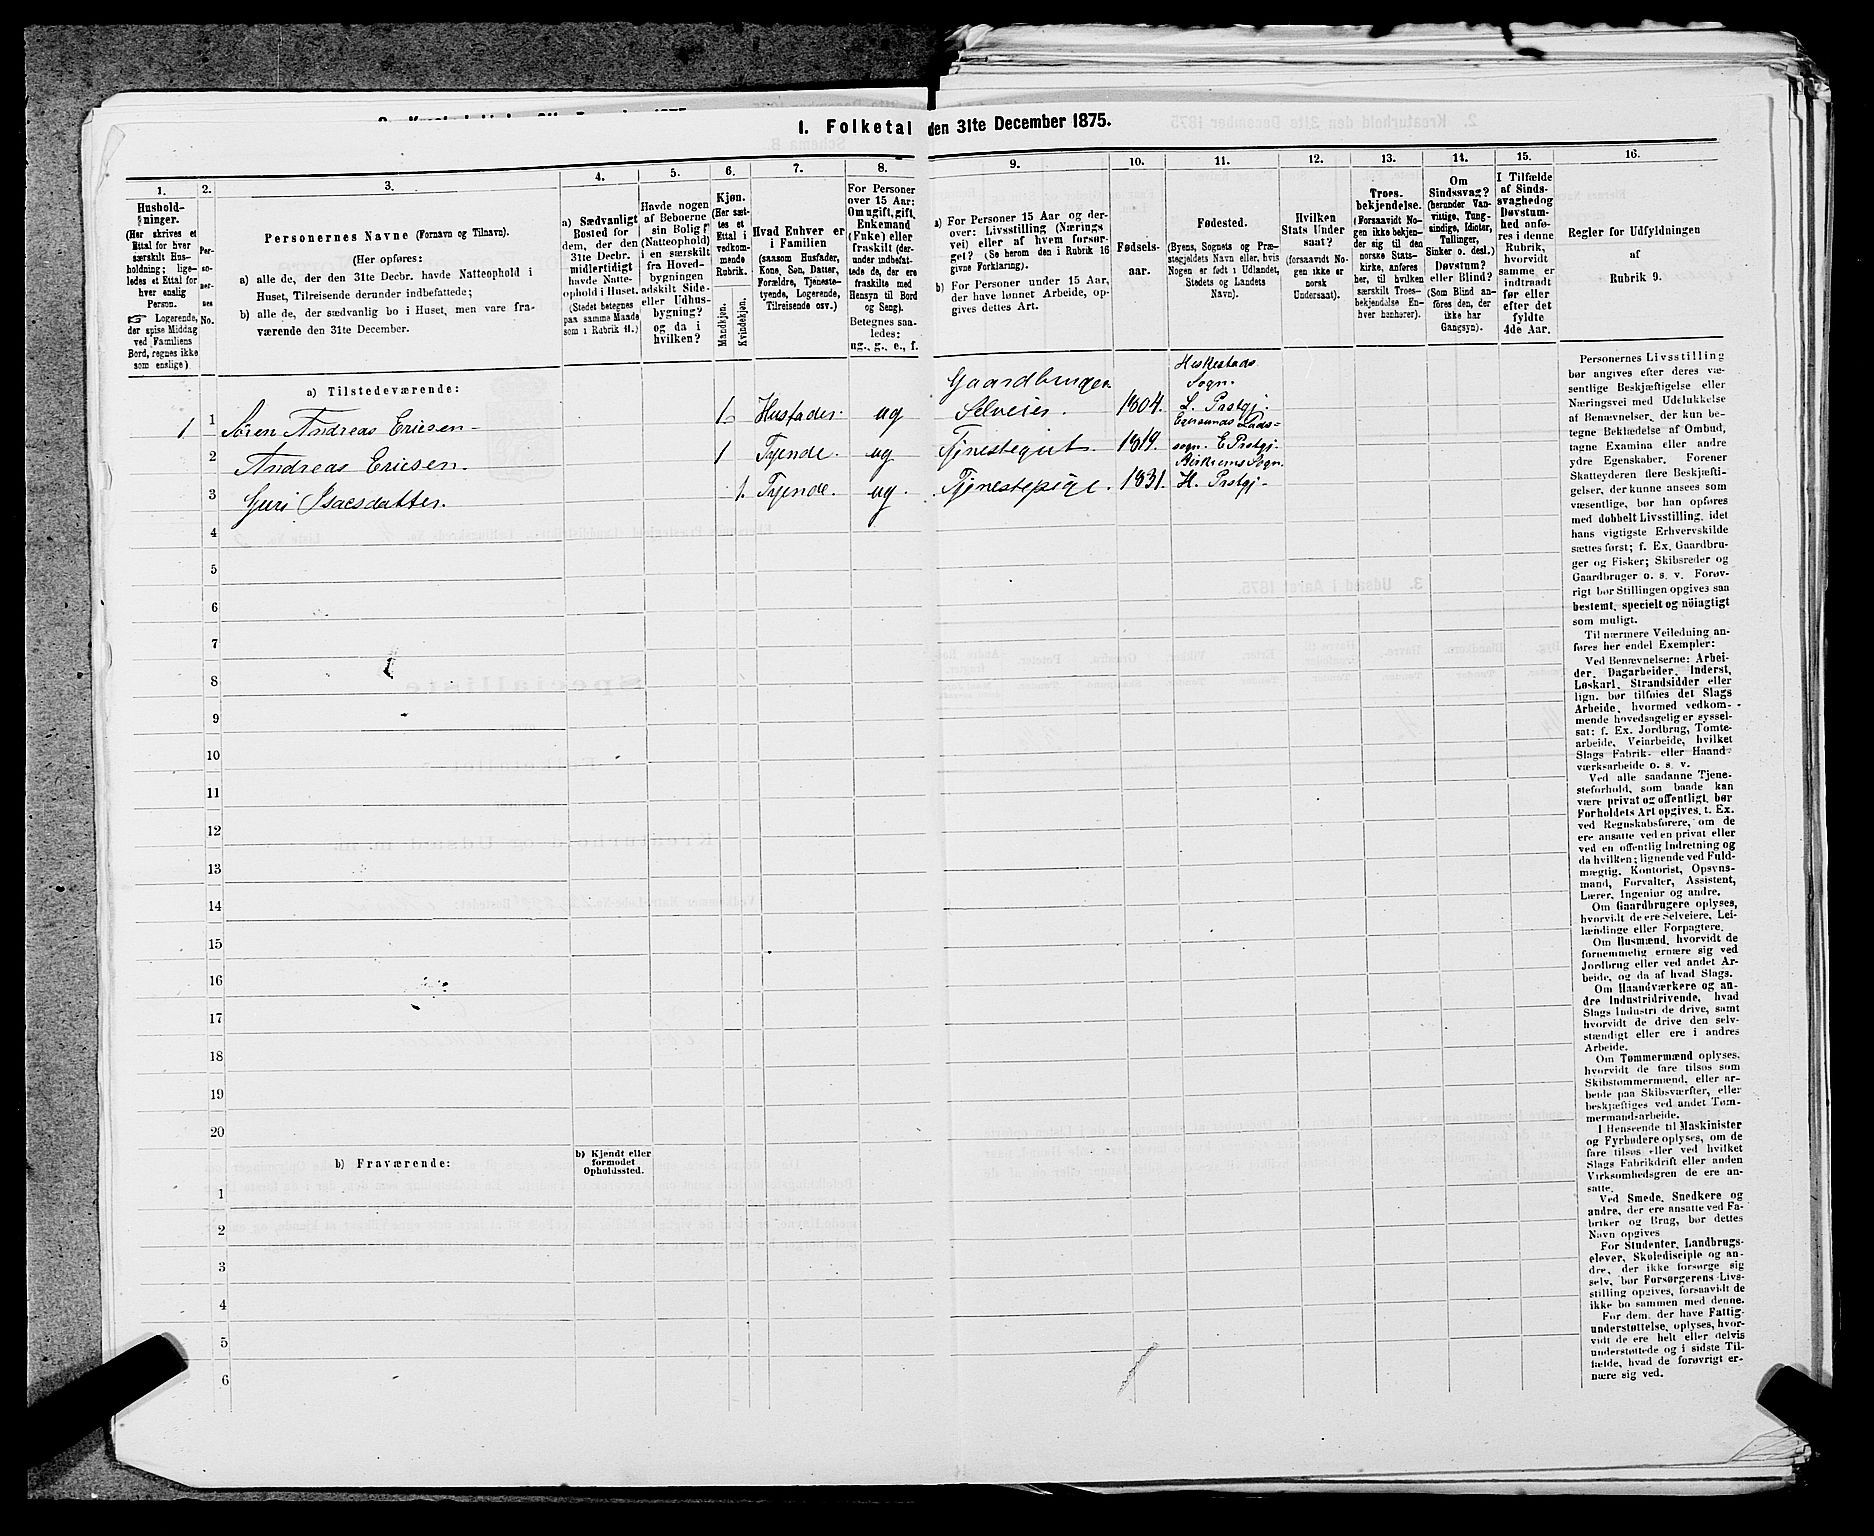 1. Folketal den 31te December 1875.
1.
2.
3.
4.
5.
6.
7.
8.
9.
10.
11.
12.
13.
14.
15.
16.
Hushold-
ninger.
(Her skrives et
Ettal for hver
særskilt Hus-
holdning; lige-
ledes et Ettal for
hver enslig
Person.
☞ Logerende,
der spise Middag
ved Familiens
Bord, regnes ikke
som enslige)
Per-
so-
ner-
nes
No.
Personernes Navne (Fornavn og Tilnavn).
(Her opføres:
a) alle de, der den 31te Decbr. havde Natteophold i
Huset, Tilreisende derunder indbefattede;
b) alle de, der sædvanlig bo i Huset, men vare fra-
værende den 31te December.
a) Sædvanligt
Bosted for
dem, der den
31te Decbr.
midlertidigt
havde Natte-
ophold i Huset.
(Stedet betegnes
paa samme Maade
som i Rubrik 11.)
Havde nogen
af Beboerne
sin Bolig
(Natteophold)
i en særskilt
fra Hoved-
bygningen
adskilt Side-
eller Udhus-
bygning?
og da i
hvilken?
Kjøn.
(Her sæt-
tes et
Ettal i
vedkom-
mende
Rubrik.
Mandkjøn.
Kvindekjøn.
Hvad Enhver er
i Familien
(saasom Husfader,
Kone, Søn, Datter,
Forældre, Tjeneste-
tyende, Logerende,
Tilreisende osv.)
For Personer
over 15 Aar:
Om ugift, gift,
Enkemand
(Enke) eller
fraskilt (der-
under indbefat-
tede de, der ere
fraskilte med
Hensyn til Bord
og Seng).
Betegnes saa-
ledes:
ug., g., e., f.
a) For Personer 15 Aar og der-
over: Livsstilling (Nærings-
vei) eller af hvem forsør-
get? (Se herom den i Rubrik 16
givne Forklaring).
b) For Personer under 15 Aar,
der have lønnet Arbeide, op-
gives dettes Art.
Fødsels-
aar.
Fødested.
(Byens, Sognets og Præ-
stegjeldets Navn eller, hvis
Nogen er født i Udlandet,
Stedets og Landets
Navn).
Hvilken
Stats Under
saat?
(forsaavidt No-
gen ikke er
norsk
Undersaat).
Troes-
bekjendelse.
(Forsaavidt No-
gen ikke bekjen-
der sig til den
norske Stats-
kirke, anføres
her, til hvilken
særskilt Troes-
bekjendelse En-
hver henhører).
Om
Sindssvag?
(herunder Van-
vittige, Tung-
sindige, Idioter,
Tullinger,
Sinker o. desl.)
Døvstum?
eller Blind?
(Som Blind an-
føres den, der
ikke har
Gangsyn).
I Tilfælde
af Sinds-
svaghed og
Døvstum-
hed anfø-
res i denne
Rubrik,
hvorvidt
samme er
indtraadt
før eller
efter det
fyldte
4de Aar.
Regler for Udfyldningen
af
Rubrik 9.
a) Tilstedeværende:
1 1 Søren Andreas Ericsen 1 Husfader ug Gaardbruger Selveier. 1804. Heskestads Sogn. L. Prstgj.
2 Andreas Ericsen. 1 Tyende. ug Tjenestegut. 1819. Egersunds Lands- sogn. E. Prstgj.
3 Guri Isacsdatter. 1. Tyende. ug. Tjenestepige. 1831. Birkrems Sogn. H. Prstgj.
4
5
6
7
8
9
10
11
12
13
14
15
16
17
18
19
20
b) Fraværende:
b) Kjendt eller
formodet
Opholdssted.
1
2
3
4
5
6
Personernes Livsstilling
bør angives efter deres væ-
sentlige Beskjæftigelse eller
Næringsvei med Udelukkelse
af Benævnelser, der kun be-
tegne Beklædelse af Ombud,
tagne Examina eller andre
ydre Egenskaber. Forener
Skatteyderen flere Beskjæfti-
gelser, der kunne ansees som
væsentlige, bør han opføres
med dobbelt Livsstilling, idet
hans vigtigste Erhvervskilde
sættes først; f. Ex. Gaardbru-
ger og Fisker; Skibsreder og
Gaardbruger o. s. v. Forøv-
rigt bør Stillingen opgives saa
bestemt, specielt og nöiagtigt
som muligt.
Til nærmere Veiledning an-
føres her endel Exempler:
Ved Benævnelserne: Arbei-
der, Dagarbeider, Inderst,
Løskarl, Strandsidder eller
lign. bør tilføies det Slags
Arbeide, hvormed vedkom-
mende hovedsagelig er syssel-
sat; f. Ex. Jordbrug, Tomte-
arbeide, Veiarbeide, hvilket
Slags Fabrik- eller Haand-
værksarbeide o. s. v.
Ved alle saadanne Tjene-
steforhold, som baade kan
være privat og offentligt, bør
Forholdets Art opgives, t. Ex.
ved Regnskabsførere, om de
ere ansatte ved en privat eller
ved en offentlig Indretning og
da hvilken; lignende ved Fuld-
mægtig, Kontorist, Opsyns-
mand, Forvalter, Assistent,
Lærer, Ingeniør og andre.
Om Gaardbrugere oplyses,
hvorvidt de ere Selveiere, Lei-
lændinge eller Forpagtere.
Om Husmænd, hvorvidt de
fornemmelig ernære sig ved
Jordbrug eller ved andet Ar-
beide, og da af hvad Slags.
Om Haandværkere og an-
dre Industridrivende, hvad
Slags Industri de drive, samt
hvorvidt de drive den selv-
stændigt eller ere i andres
Arbeide.
Om Tømmermænd oplyses,
hvorvidt de fare tilsøs som
Skibstømmermænd, eller ar-
beide paa Skibsværfter, eller
beskjæftiges ved andet Tøm-
mermand-arbeide.
I Henseende til Maskinister
og Fyrbødere oplyses, om de
fare tilsøs eller ved hvilket
Slags Fabrikdrift eller anden
Virksomhedsgren de ere an-
satte.
Ved Smede, Snedkere og
andre, der ere ansatte ved Fa-
briker og Brug, bør dettes
Navn opgives
For Studenter, Landbrugs-
elever, Skoledisciple og an-
dre, der ikke forsørge sig
selv, bør Forsørgerens Livs-
stilling opgives, forsaavidt de
ikke bo sammen med denne.
For dem, der have Fattig-
understøttelse, oplyses, hvor-
vidt de ere helt eller delvis
understøttede og i sidste Til-
fælde, hvad de forøvrigt er-
nære sig ved.